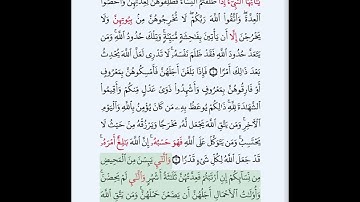 يَٰٓأَيُّهَا اَ۬لنَّبِيٓءُ اِ۪ذَا طَلَّقْتُمُ اُ۬لنِّسَآءَ فَطَلِّقُوهُنَّ لِعِدَّتِهِنَّ وَأَحْصُواْ
اُ۬لْعِدَّةَ وَاتَّقُواْ اُ۬للَّهَ رَبَّكُمْ لَا تُخْرِجُوهُنَّ مِنۢ بُيُوتِهِنَّ وَلَا
يَخْرُجْنَ إِلَّآ أَنْ يَّأْتِينَ بِفَٰحِشَةٖ مُّبَيِّنَةٖ وَتِلْكَ حُدُودُ اُ۬للَّهِ وَمَنْ
يَّتَعَدَّ حُدُودَ اَ۬للَّهِ فَقَدْ ظَلَمَ نَفْسَهُۥ لَا تَدْرِے لَعَلَّ اَ۬للَّهَ يُحْدِثُ
بَعْدَ ذَٰلِكَ أَمْراٗ ١ فَإِذَا بَلَغْنَ أَجَلَهُنَّ فَأَمْسِكُوهُنَّ بِمَعْرُوفٍ
أَوْ فَارِقُوهُنَّ بِمَعْرُوفٖ وَأَشْهِدُواْ ذَوَےْ عَدْلٖ مِّنكُمْ وَأَقِيمُواْ
اُ۬لشَّهَٰدَةَ لِلهِ ذَٰلِكُمْ يُوعَظُ بِهِۦ مَن كَانَ يُؤْمِنُ بِاللَّهِ وَالْيَوْمِ
اِ۬لْأٓخِرِ وَمَنْ يَّتَّقِ اِ۬للَّهَ يَجْعَل لَّهُۥ مَخْرَجاٗ وَيَرْزُقْهُ مِنْ حَيْثُ لَا
يَحْتَسِبُ وَمَنْ يَّتَوَكَّلْ عَلَى اَ۬للَّهِ فَهُوَ حَسْبُهُۥٓ إِنَّ اَ۬للَّهَ بَٰلِغٌ اَمْرَهُۥ
قَدْ جَعَلَ اَ۬للَّهُ لِكُلِّ شَےْءٖ قَدْراٗ وَالَّٰٓـِٔے يَئِسْنَ مِنَ اَ۬لْمَحِيضِ
مِن نِّسَآئِكُمُۥٓ إِنِ اِ۪رْتَبْتُمْ فَعِدَّتُهُنَّ ثَلَٰثَةُ أَشْهُرٖ وَالَّٰٓـِٔے لَمْ يَحِضْنَ
وَأُوْلَٰتُ اُ۬لْأَحْمَالِ أَجَلُهُنَّ أَنْ يَّضَعْنَ حَمْلَهُنَّ وَمَنْ يَّتَّقِ اِ۬للَّهَ